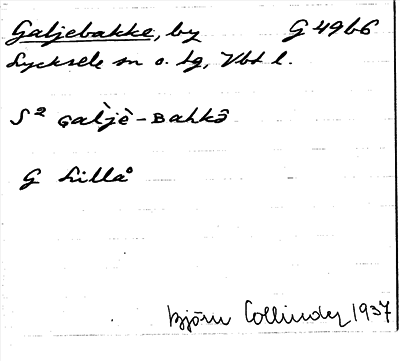 Galjebakke, by G 49 b6
Lycksele sn o. tg, Vbt l.
S² Galjè-Bahkô
G Lillå
Björn Collinder 1937